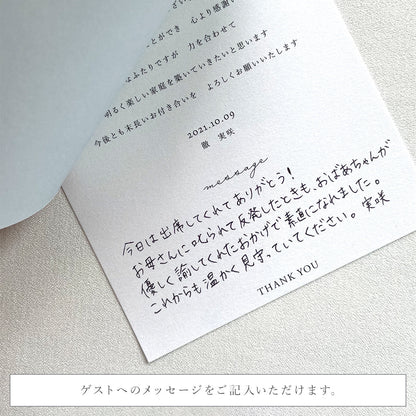 ことができ 心より感謝い
はふたりですが 力を合わせて
明るく楽しい家庭を築いていきたいと思います
今後とも末長いお付き合いを よろしくお願いいたします
2021.10.09
徹 実咲
message
今日は出席してくれてありがとう！
お母さんに叱られて反発したときも、おばあちゃんが
優しく諭してくれたおかげで素直になれました。
これからも温かく見守っていてください。 実咲
THANK YOU
ゲストへのメッセージをご記入いただけます。